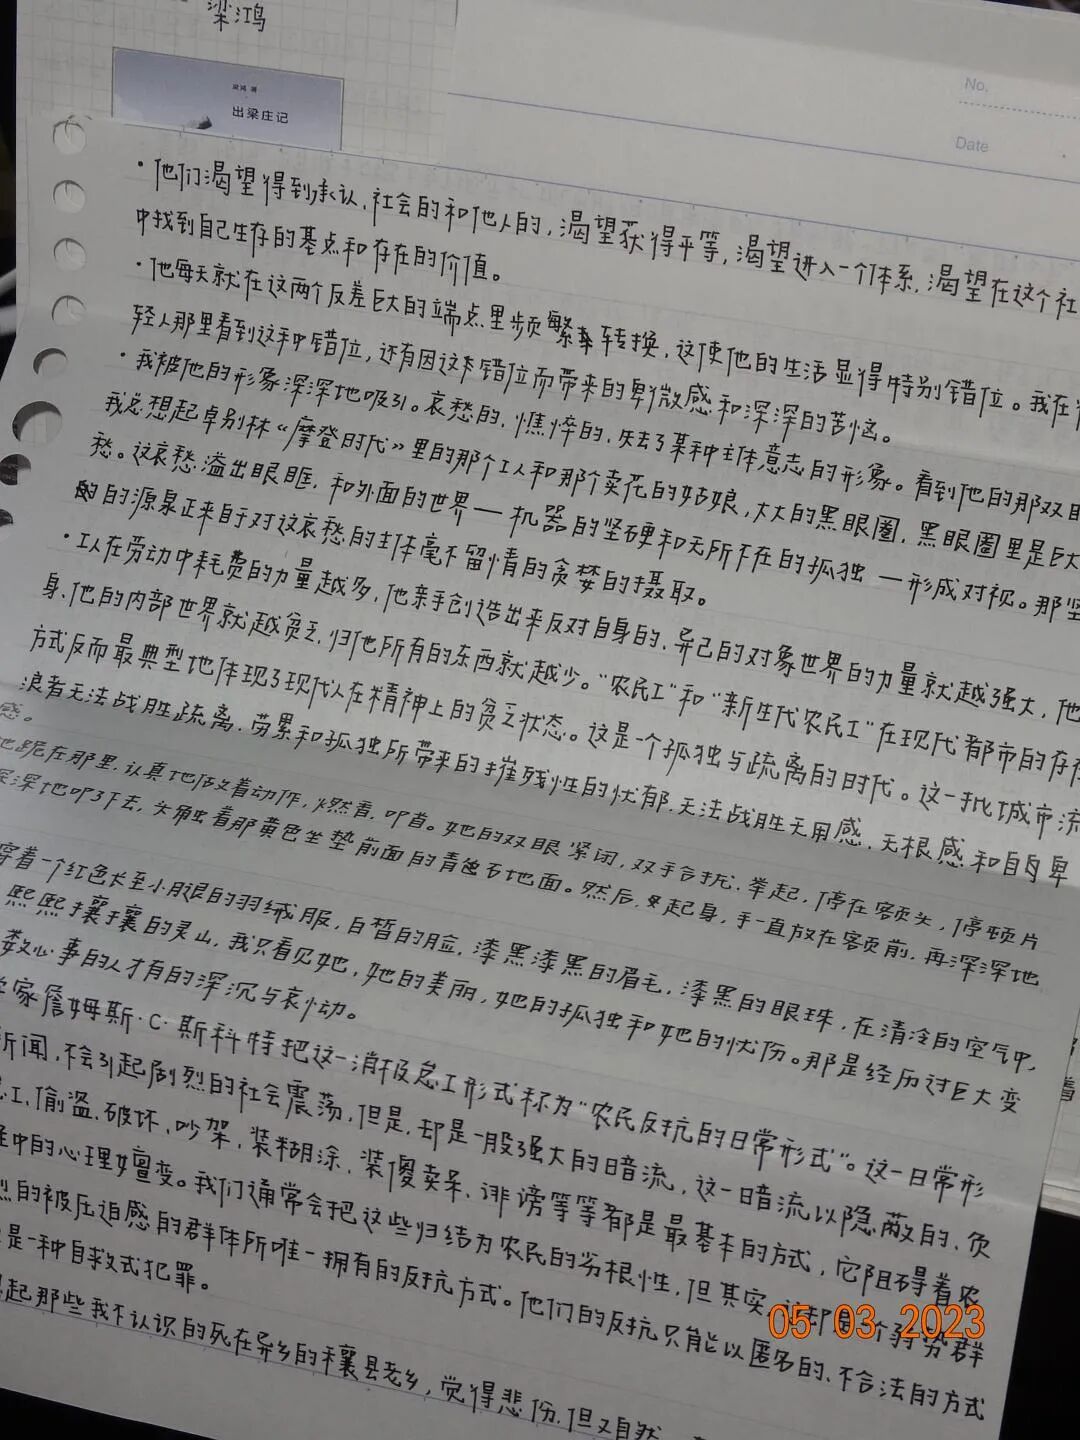 梁鸿
梁鸿 著
出梁庄记
No.
Date
·他们渴望得到承认,社会的和他人的,渴望获得平等,渴望进入一个体系,渴望在这个社
中找到自己生存的基点和存在的价值。
·他每天就在这两个反差巨大的端点里频繁转换,这使他的生活显得特别错位。我在
轻人那里看到这种错位,还有因这种错位而带来的卑微感和深深的苦恼。
·我被他的形象深深地吸引。哀愁的,憔悴的,失去了某种主体意志的形象。看到他的那双眼
我总想起卓别林《摩登时代》里的那个工人和那个卖花的姑娘,大大的黑眼圈,黑眼圈里是巨大
愁。这哀愁溢出眼眶,和外面的世界—机器的坚硬和无所不在的孤独—形成对视。那坚
的源泉正来自于对这哀愁的主体毫不留情的贪婪的摄取。
·工人在劳动中耗费的力量越多,他亲手创造出来反对自身的、异己的对象世界的力量就越强大,他
身、他的内部世界就越贫乏,归他所有的东西就越少。"农民工"和"新生代农民工"在现代都市的存在
方式反而最典型地体现了现代人在精神上的贫乏状态。这是一个孤独与疏离的时代。这一批城市流
浪者无法战胜疏离、劳累和孤独所带来的摧残性的忧郁,无法战胜无用感、无根感和自卑
感。
她跪在那里,认真地做着动作,燃香,叩首。她的双眼紧闭,双手合拢,举起,停在额头,停顿片
深深地叩了下去,头触着那黄色坐垫前面的青色石地面。然后,又起身,手一直放在额前,再深深地
穿着一个红色长至小腿的羽绒服,白皙的脸,漆黑漆黑的眉毛,漆黑的眼珠,在清冷的空气中,
熙熙攘攘的灵山,我只看见她,她的美丽,她的孤独和她的忧伤。那是经历过巨大变
数心事的人才有的深沉与哀恸。
家詹姆斯·C·斯科特把这一消极怠工形式称为"农民反抗的日常形式"。这一日常形
新闻,不会引起剧烈的社会震荡,但是,却是一股强大的暗流,这一暗流以隐蔽的、负
工、偷盗、破坏、吵架、装糊涂、装傻卖呆、诽谤等等都是最基本的方式,它阻碍着农
中的心理嬗变。我们通常会把这些归结为农民的劣根性,但其实,这却是一个弱势群
烈的被压迫感的群体所唯一拥有的反抗方式。他们的反抗只能以匿名的、不合法的方式
是一种自救式犯罪。
起那些我不认识的死在异乡的穰县老乡,觉得悲伤,但又自然
着
05 03 2023